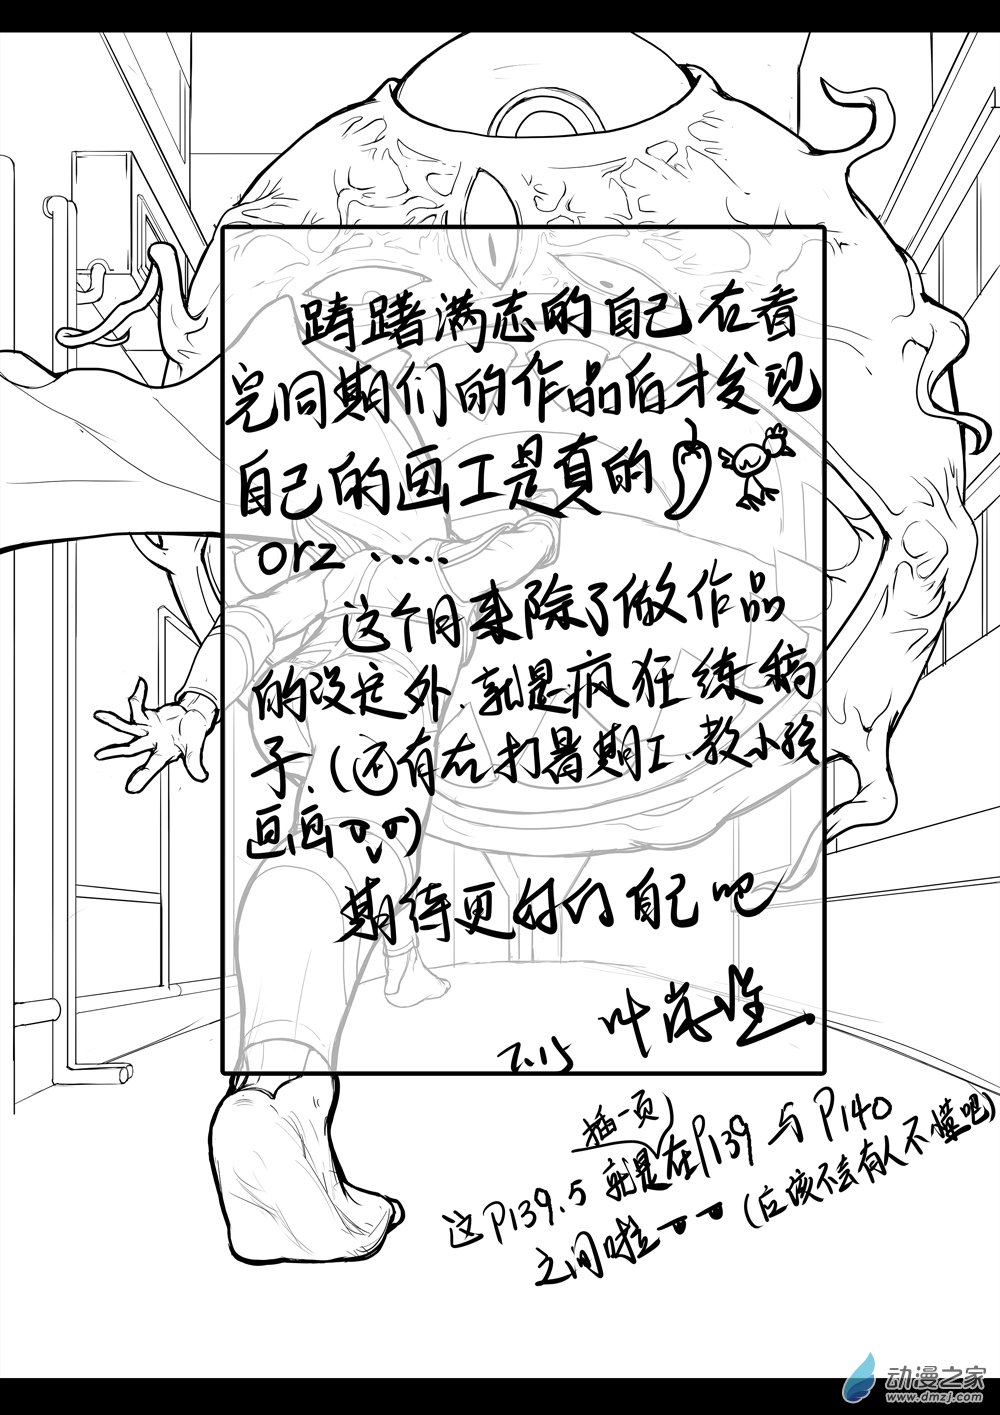 踌躇满志的自己在看
完同期们的作品后才发现
自己的画工是真的
orz ......
这个月来除了做作品
的设定外、就是疯狂练稿
子、(还有在打暑期工、教小孩
画画
期待更好的自己吧
7.15
插一页
这P139.5 就是在P139 与 P140
之间啦 (应该不会有人不懂吧)
动漫之家
www.dmzj.com